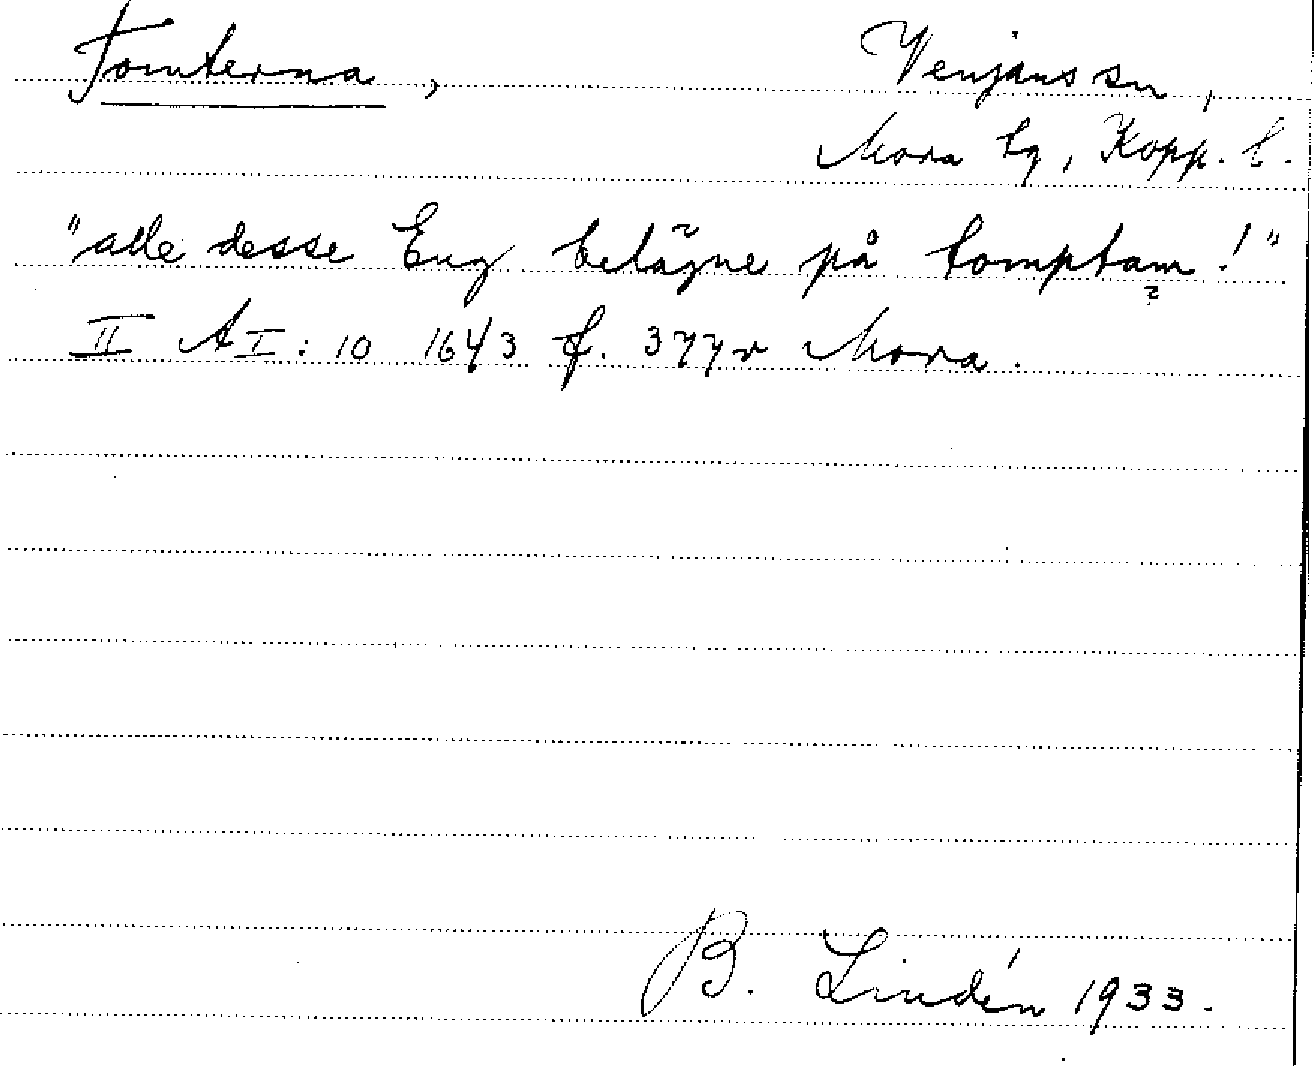 Tomterna, Venjans sn,
Mora tg, Kopp. l.
"alle desse Eng belägne på tomptam!"
?
II A I: 10 1643 f. 377 v Mora.
B. Lindén 1933.